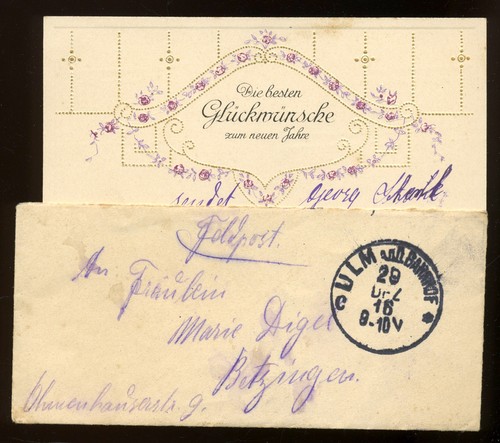 Die besten
Glückwünsche
zum neuen Jahre
sendet Georg
Feldpost.
An Fräulein
Marie Digel
Betzingen.
Ohmenhauserstr. 9.
ULM a/D. BAHNHOF
29
DEZ
16
9-10V
c *